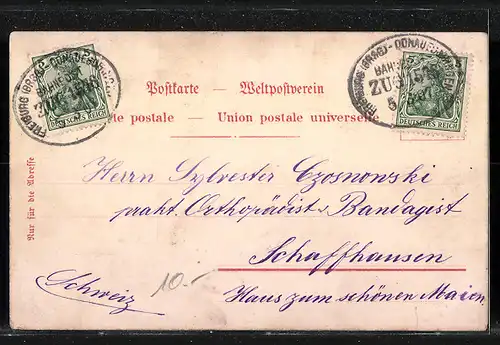 FREIBURG (BRSG)-DONAUESCHINGEN
BAHNPOST
ZUG
FREIBURG (BRSG)-DONAUESCHINGEN
BAHNPOST
ZUG
DEUTSCHES REICH
DEUTSCHES REICH
Postkarte - Weltpostverein
postale - Union postale universelle
Nur für die Adresse
Herrn Sylvester Czosnowski
prakt. Orthopädist u. Bandagist
Schaffhausen
Schweiz
10.-
Haus zum schönen Maien